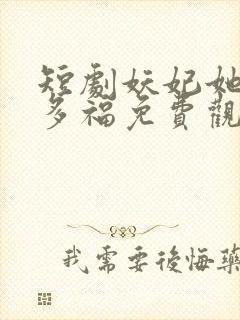 短劇妖妃她
多福免費觀
我需要後悔藥